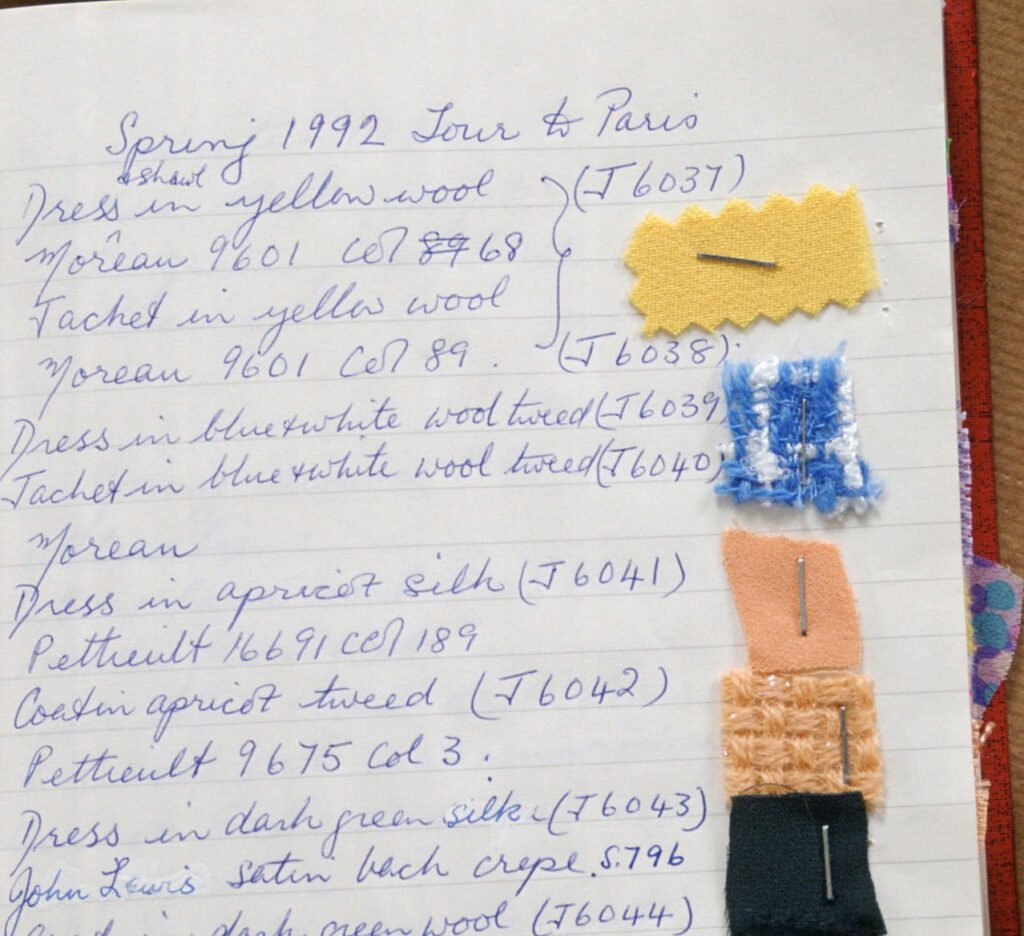 Spring 1992 Tour to Paris
+ shawl
Dress in yellow wool (J6037)
Moreau 9601 Col 89 68
Jacket in yellow wool
Moreau 9601 Col 89. (J6038)
Dress in blue + white wool tweed (J6039
Jacket in blue + white wool tweed (J6040)
Moreau
Dress in apricot silk (J6041)
Pettieult 16691 Col 189
Coat in apricot tweed (J6042)
Pettieult 9675 Col 3.
Dress in dark green silk. (J6043)
John Lewis satin back crepe. S.796
in dark green wool (J6044)